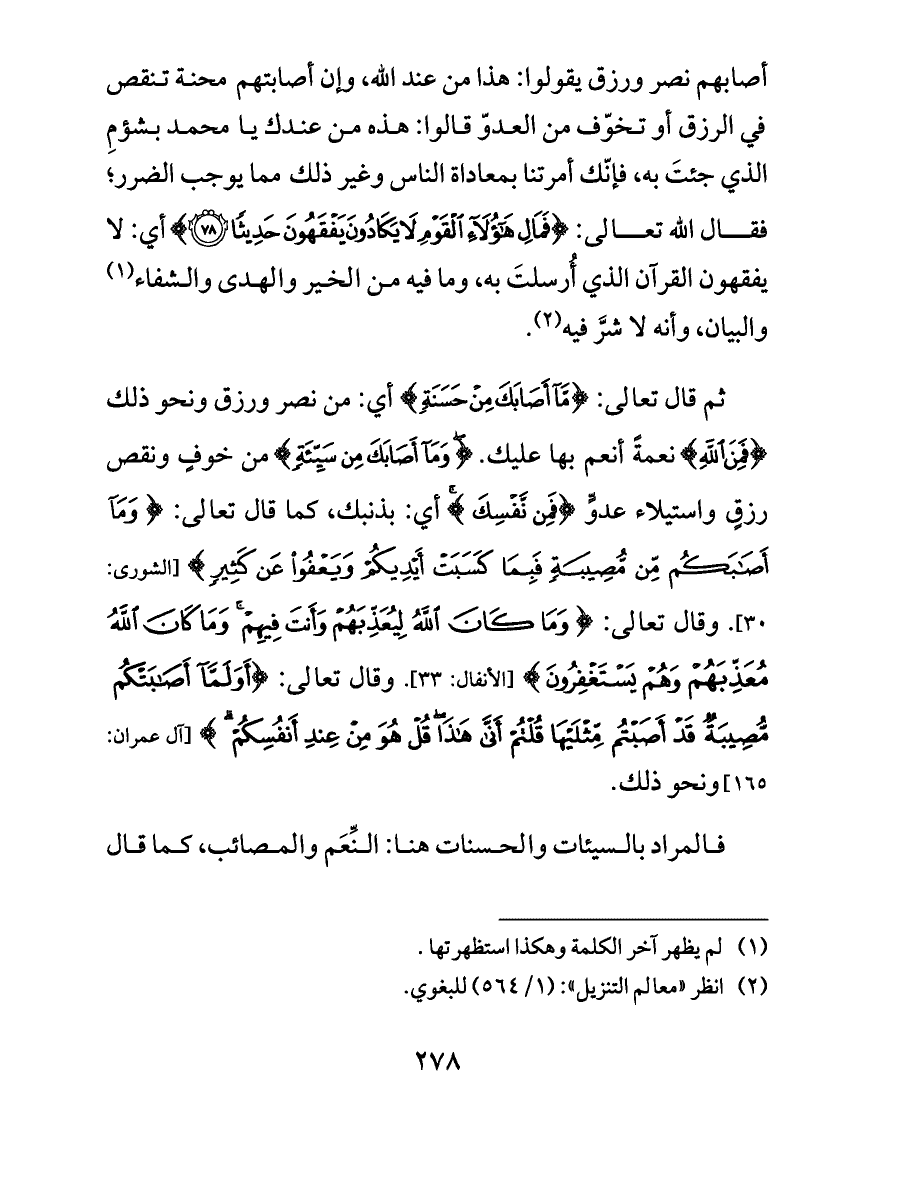 أصابهم نصر ورزق يقولوا: هذا من عند الله، وإن أصابتهم محنة تنقص
في الرزق أو تخوّف من العدوّ قالوا: هذه من عندك يا محمد بشؤمِ
الذي جئتَ به، فإنّك أمرتنا بمعاداة الناس وغير ذلك مما يوجب الضرر؛
فقال الله تعالى: ﴿فَمَالِ هَٰٓؤُلَآءِ ٱلْقَوْمِ لَا يَكَادُونَ يَفْقَهُونَ حَدِيثًا ٧٨﴾ أي: لا
يفقهون القرآن الذي أُرسلتَ به، وما فيه من الخير والهدى والشفاء(١)
والبيان، وأنه لا شرَّ فيه(٢).
ثم قال تعالى: ﴿مَّآ أَصَابَكَ مِنْ حَسَنَةٍ﴾ أي: من نصر ورزق ونحو ذلك
﴿فَمِنَ ٱللَّهِ﴾ نعمةً أنعم بها عليك. ﴿ۖ وَمَآ أَصَابَكَ مِن سَيِّئَةٍ﴾ من خوفٍ ونقص
رزقٍ واستيلاء عدوٍّ ﴿فَمِن نَّفْسِكَ ۚ﴾ أي: بذنبك، كما قال تعالى: ﴿ وَمَآ
أَصَٰبَكُم مِّن مُّصِيبَةٍ فَبِمَا كَسَبَتْ أَيْدِيكُمْ وَيَعْفُوا۟ عَن كَثِيرٍ ﴾ [الشورى:
٣٠]. وقال تعالى: ﴿ وَمَا كَانَ ٱللَّهُ لِيُعَذِّبَهُمْ وَأَنتَ فِيهِمْ ۚ وَمَا كَانَ ٱللَّهُ
مُعَذِّبَهُمْ وَهُمْ يَسْتَغْفِرُونَ ﴾ [الأنفال: ٣٣]. وقال تعالى: ﴿أَوَلَمَّآ أَصَٰبَتْكُم
مُّصِيبَةٌ قَدْ أَصَبْتُم مِّثْلَيْهَا قُلْتُمْ أَنَّىٰ هَٰذَا ۖ قُلْ هُوَ مِنْ عِندِ أَنفُسِكُمْ ۗ ﴾ [آل عمران:
١٦٥] ونحو ذلك.
فالمراد بالسيئات والحسنات هنا: النِّعَم والمصائب، كما قال
(١) لم يظهر آخر الكلمة وهكذا استظهرتها .
(٢) انظر «معالم التنزيل»: (١/ ٥٦٤) للبغوي.
٢٧٨